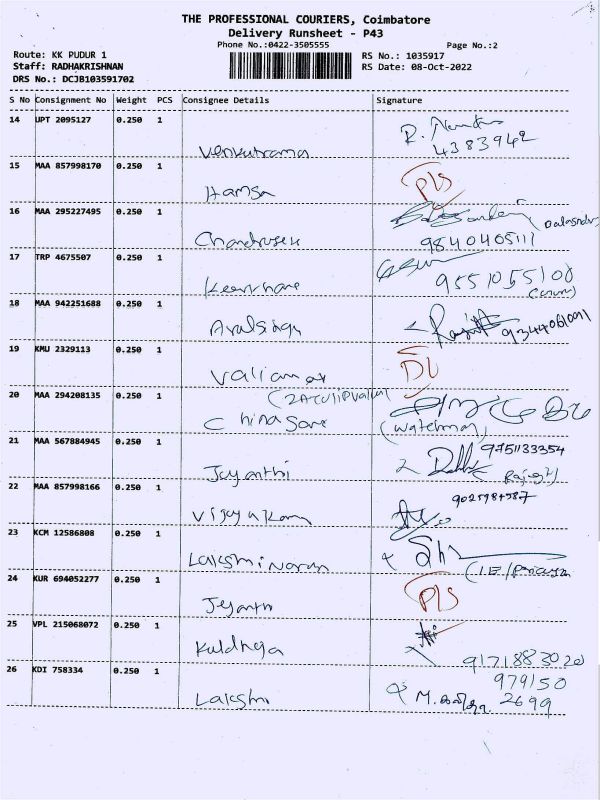 THE PROFESSIONAL COURIERS, Coimbatore
Delivery Runsheet - P43
Phone No.:0422-3505555
Page No.:2
Route: KK PUDUR 1
Staff: RADHAKRISHNAN
DRS No.: DCJB103591702
RS No.: 1035917
RS Date: 08-Oct-2022
S No Consignment No Weight PCS Consignee Details Signature
14 UPT 2095127 0.250 1
Venkutrama 4383942
15 MAA 857998170 0.250 1
Hamsa
16 MAA 295227495 0.250 1
Chandrusek 9840405111
17 TRP 4675507 0.250 1
Keerthane 9551055100
18 MAA 942251688 0.250 1
9344061091
19 KMU 2329113 0.250 1
Valiamar DL
20 MAA 294208135 0.250 1
China Sare (Watchman)
21 MAA 567884945 0.250 1
9751133354
Jayanthi
22 MAA 857998166 0.250 1
9025989587
Vijayakam
23 KCM 12586808 0.250 1
Lakshminaran
24 KUR 694052277 0.250 1
Jeyanth
25 VPL 215068072 0.250 1
Kuldhga 9171883020
26 KDI 758334 0.250 1
979150
Lakshmi 2699